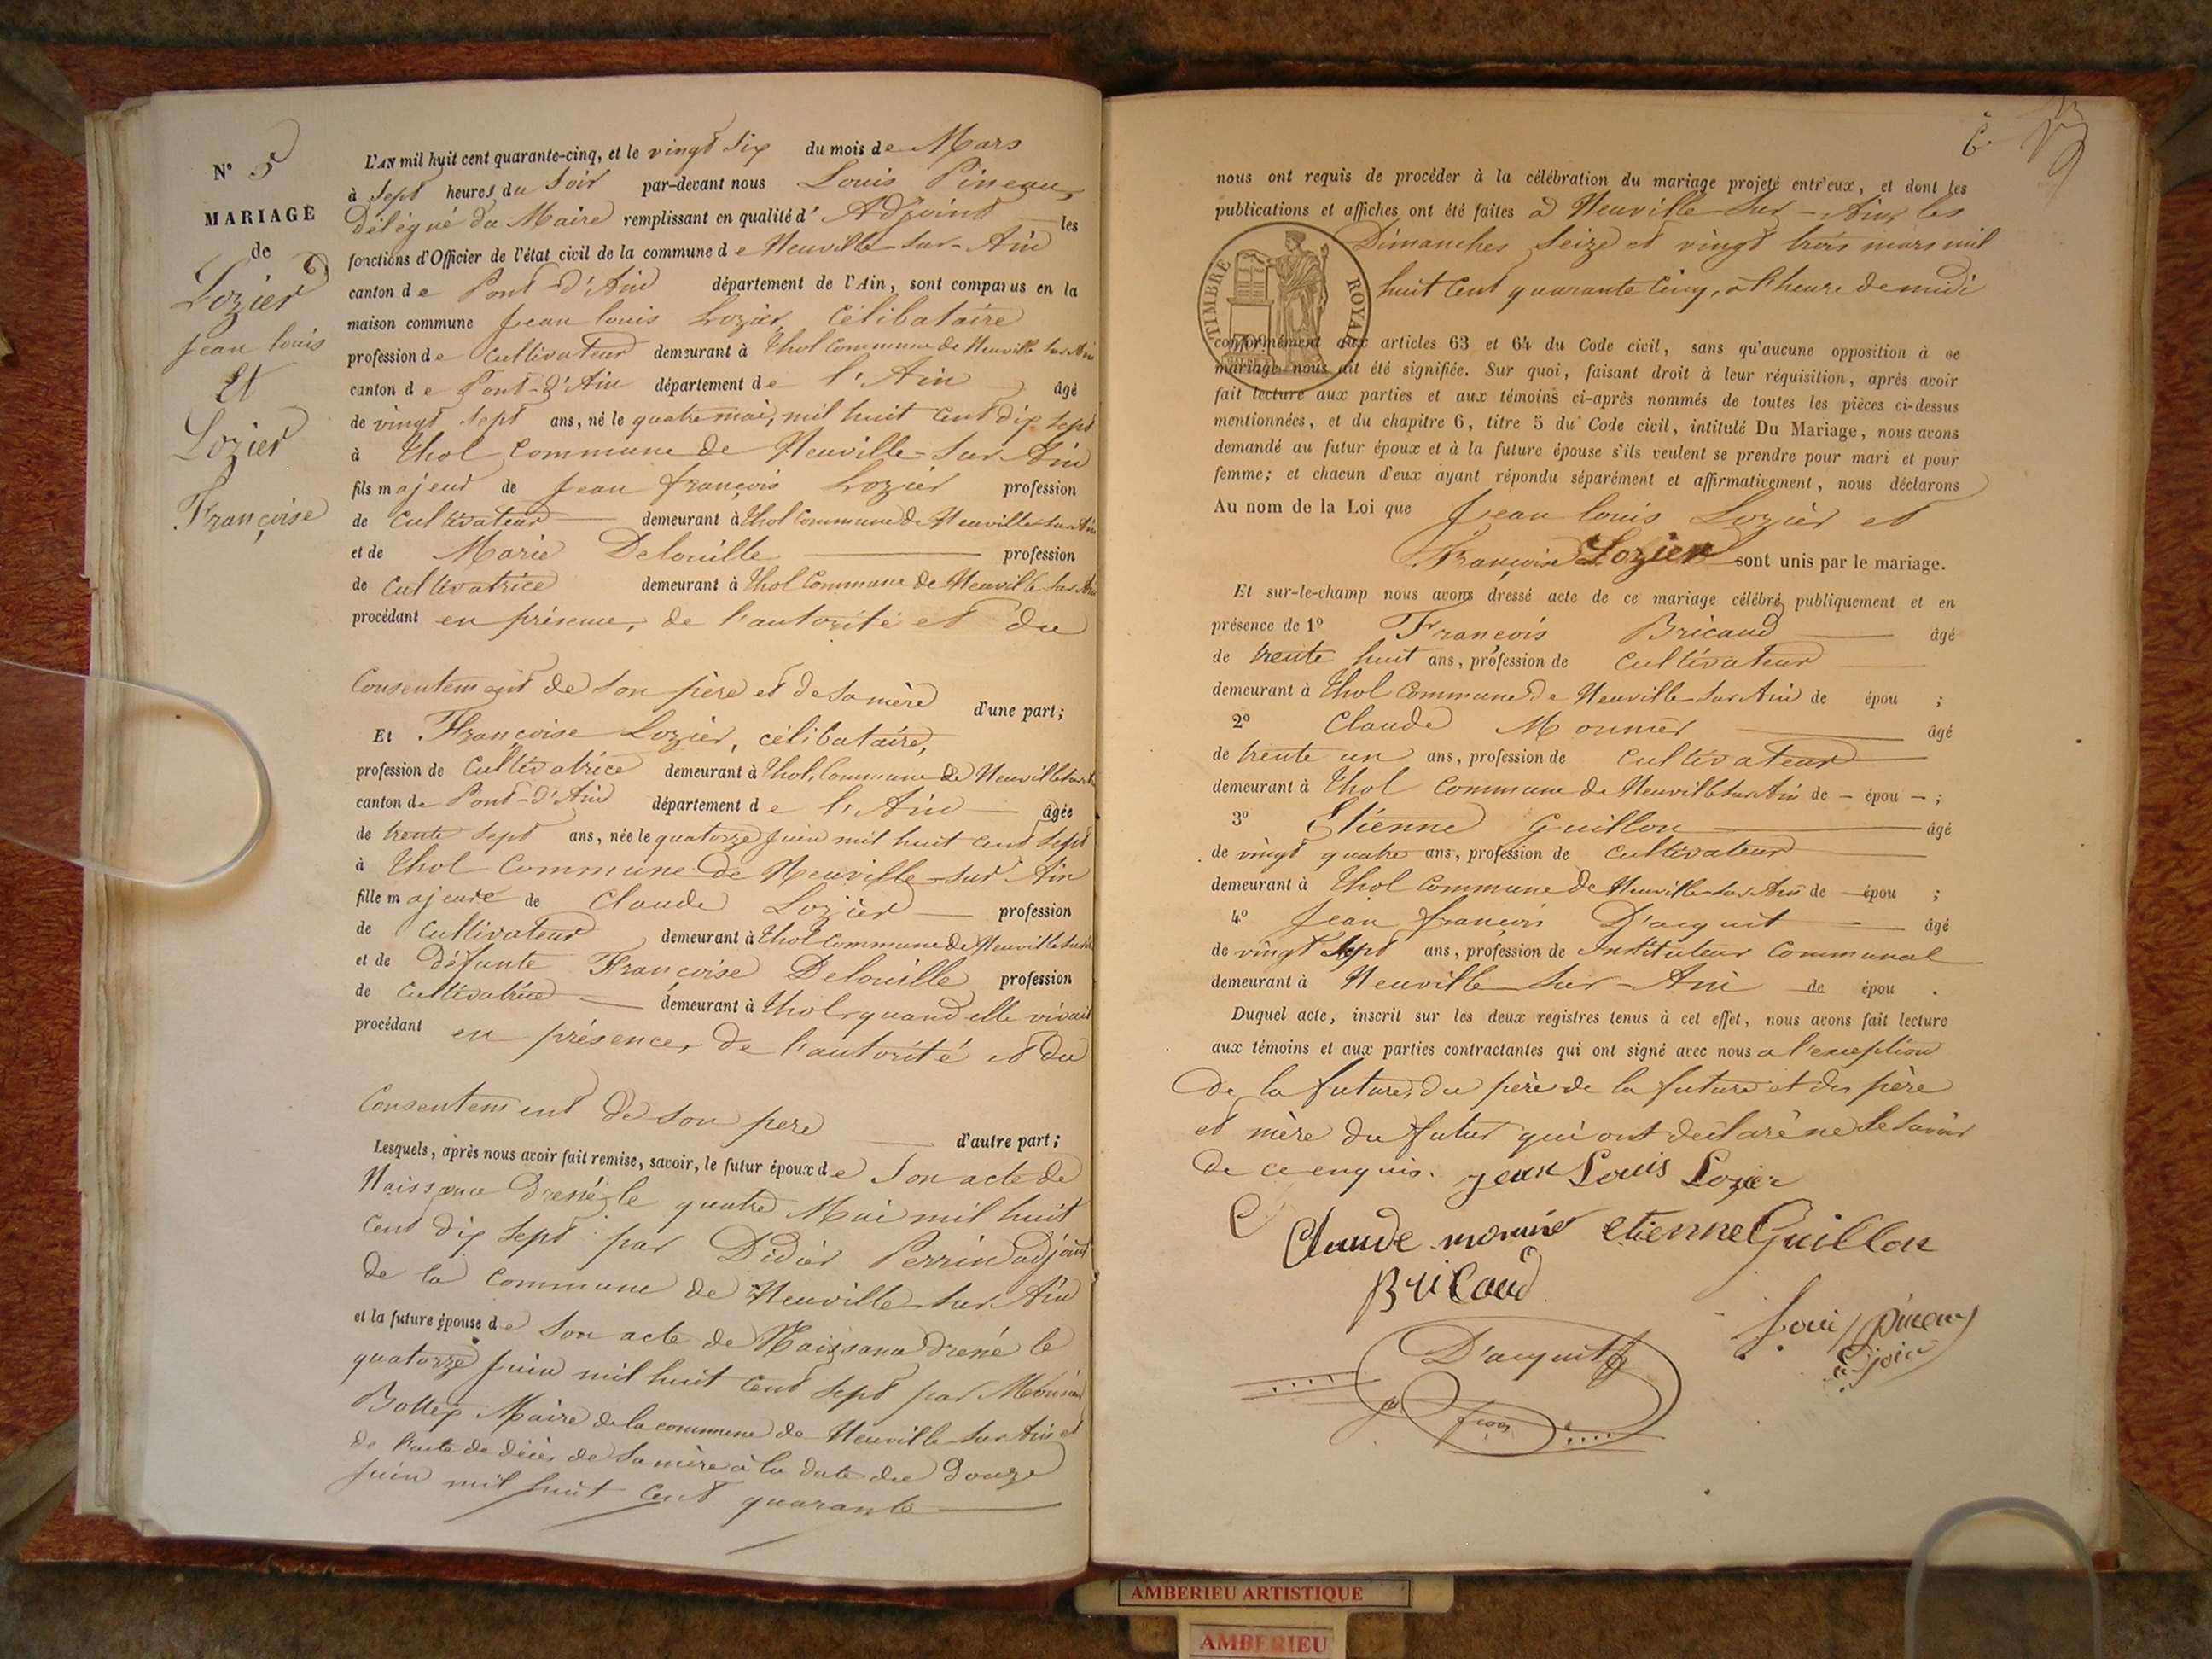 N° 5
MARIAGE
de
Lozier
Jean louis
Et
Lozier
Françoise
L'AN mil huit cent quarante-cinq, et le vingt six du mois de Mars
à Sept heures du Soir par-devant nous Louis Pineau,
Délégué du Maire remplissant en qualité d'Adjoint les
fonctions d'Officier de l'état civil de la commune de Neuville-sur-Ain
canton de Pont-d'Ain département de l'Ain, sont comparus en la
maison commune Jean louis Lozier, célibataire
profession de Cultivateur demeurant à Thol Commune de Neuville sur Ain
canton de Pont-d'Ain département de l'Ain âgé
de vingt sept ans, né le quatre mai, mil huit cent dix sept
à Thol Commune de Neuville-sur-Ain
fils majeur de Jean françois Lozier profession
de Cultivateur demeurant à Thol Commune de Neuville-sur-Ain
et de Marie Delouille profession
de Cultivatrice demeurant à Thol Commune de Neuville sur Ain
procédant en présence, de l'autorité et du
Consentement de son père et de sa mère d'une part;
Et Françoise Lozier, célibataire,
profession de Cultivatrice demeurant à Thol, Commune de Neuville sur
canton de Pont-d'Ain département de l'Ain âgée
de trente sept ans, née le quatorze juin mil huit cent sept
à Thol Commune de Neuville-sur Ain
fille majeure de Claude Lozier profession
de Cultivateur demeurant à Thol Commune de Neuville sur
et de défunte Françoise Delouille profession
de Cultivatrice demeurant à Thol, quand elle vivait
procédant en présence, de l'autorité et du
Consentement de son pere d'autre part;
Lesquels, après nous avoir fait remise, savoir, le futur époux de Son acte de
Naissance Dressé le quatre Mai mil huit
Cent dix sept par Didier Perrin adjoint
de la Commune de Neuville-sur-Ain
et la future épouse de Son acte de Naissance dressé le
quatorze Juin mil huit cent sept par
Bottex Maire de la commune de Neuville sur Ain et
de l'acte de décès de sa mère à la date du Douze
Juin mil huit cent quarante
6
nous ont requis de procéder à la célébration du mariage projeté entr'eux, et dont les
publications et affiches ont été faites à Neuville-sur-Ain, les
Dimanches Seize et vingt trois mars mil
huit cent quarante cinq, à l'heure de midi
TIMBRE ROYAL
conformément aux articles 63 et 64 du Code civil, sans qu'aucune opposition à ce
mariage nous ait été signifiée. Sur quoi, faisant droit à leur réquisition, après avoir
fait lecture aux parties et aux témoins ci-après nommés de toutes les pièces ci-dessus
mentionnées, et du chapitre 6, titre 5 du Code civil, intitulé Du Mariage, nous avons
demandé au futur époux et à la future épouse s'ils veulent se prendre pour mari et pour
femme; et chacun d'eux ayant répondu séparément et affirmativement, nous déclarons
Au nom de la Loi que Jean louis Lozier et
Françoise Lozier sont unis par le mariage.
Et sur-le-champ nous avons dressé acte de ce mariage célébré publiquement et en
présence de 1° François Bricaud âgé
de trente huit ans, profession de Cultivateur
demeurant à Thol Commune de Neuville-sur Ain de épou ;
2° Claude Monnier âgé
de trente un ans, profession de Cultivateur
demeurant à Thol Commune de Neuville sur Ain de - épou - ;
3° Etienne Guillon âgé
de vingt quatre ans, profession de Cultivateur
demeurant à Thol Commune de Neuville sur Ain de épou ;
4° Jean françois D'acquit âgé
de vingt sept ans, profession de Instituteur Communal
demeurant à Neuville Sur-Ain de épou .
Duquel acte, inscrit sur les deux registres tenus à cet effet, nous avons fait lecture
aux témoins et aux parties contractantes qui ont signé avec nous à l'exception
de la future, du père de la future et des père
et mère du futur qui ont déclaré ne le savoir
de ce enquis. jean Louis Lozier
Claude monnier etienne Guillon
Bricaud
Louis Pineau
adjoint
D'acquit
AMBERIEU ARTISTIQUE
AMBERIEU